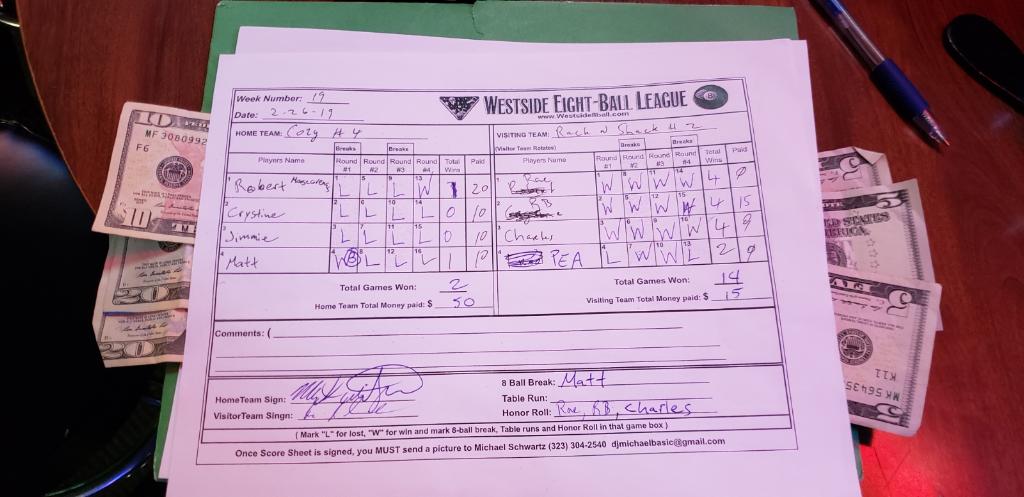 Week Number: 19
Date: 2-26-19
WESTSIDE EIGHT-BALL LEAGUE
www.Westside8ball.com
HOME TEAM: Cozy # 4
VISITING TEAM: Rack N Shack # 2
(Visitor Team Rotates)
Breaks Breaks
Players Name Round #1 Round #2 Round #3 Round #4 Total Wins Paid
1 Robert L L L W 1 20
2 Crystine L L L L 0 10
3 Jimmie L L L L 0 10
4 Matt W 8 L L L 1 10
Total Games Won: 2
Home Team Total Money paid: $ 50
Breaks Breaks
Players Name Round #1 Round #2 Round #3 Round #4 Total Wins Paid
1 Rae W W W W 4 0
2 BB W W W W 4 15
3 Charles W W W W 4 0
4 PEA L W W L 2 0
Total Games Won: 14
Visiting Team Total Money paid: $ 15
Comments: (
HomeTeam Sign:
VisitorTeam Singn:
8 Ball Break: Matt
Table Run:
Honor Roll: Rae, BB, Charles
( Mark "L" for lost, "W" for win and mark 8-ball break, Table runs and Honor Roll in that game box )
Once Score Sheet is signed, you MUST send a picture to Michael Schwartz (323) 304-2540 djmichaelbasic@gmail.com
10
MF 3080992
F6
10
20
20
5
D STATES
5
K11
MK 56435